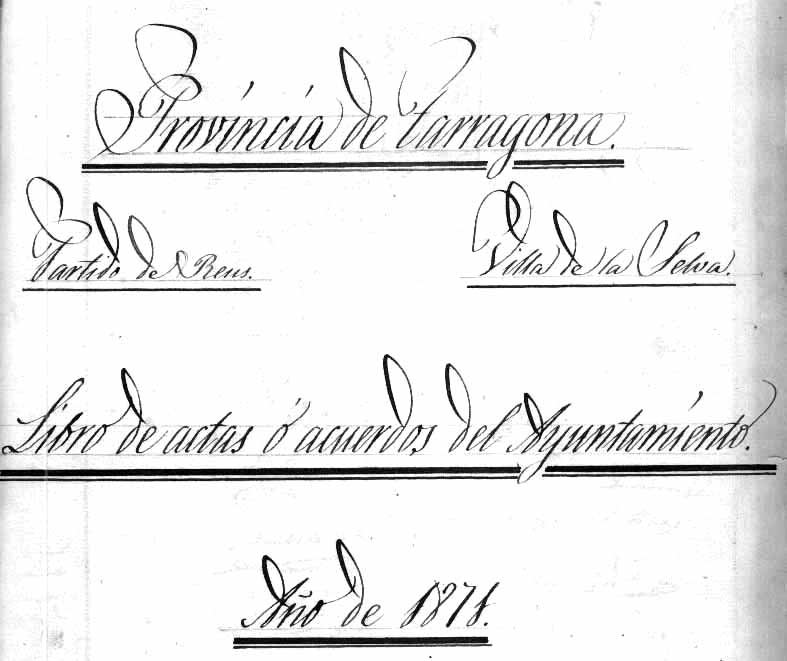 Provincia de Tarragona.
Partido de Reus.
Villa de la Selva.
Libro de actas ó acuerdos del Ayuntamiento.
Año de 1878.